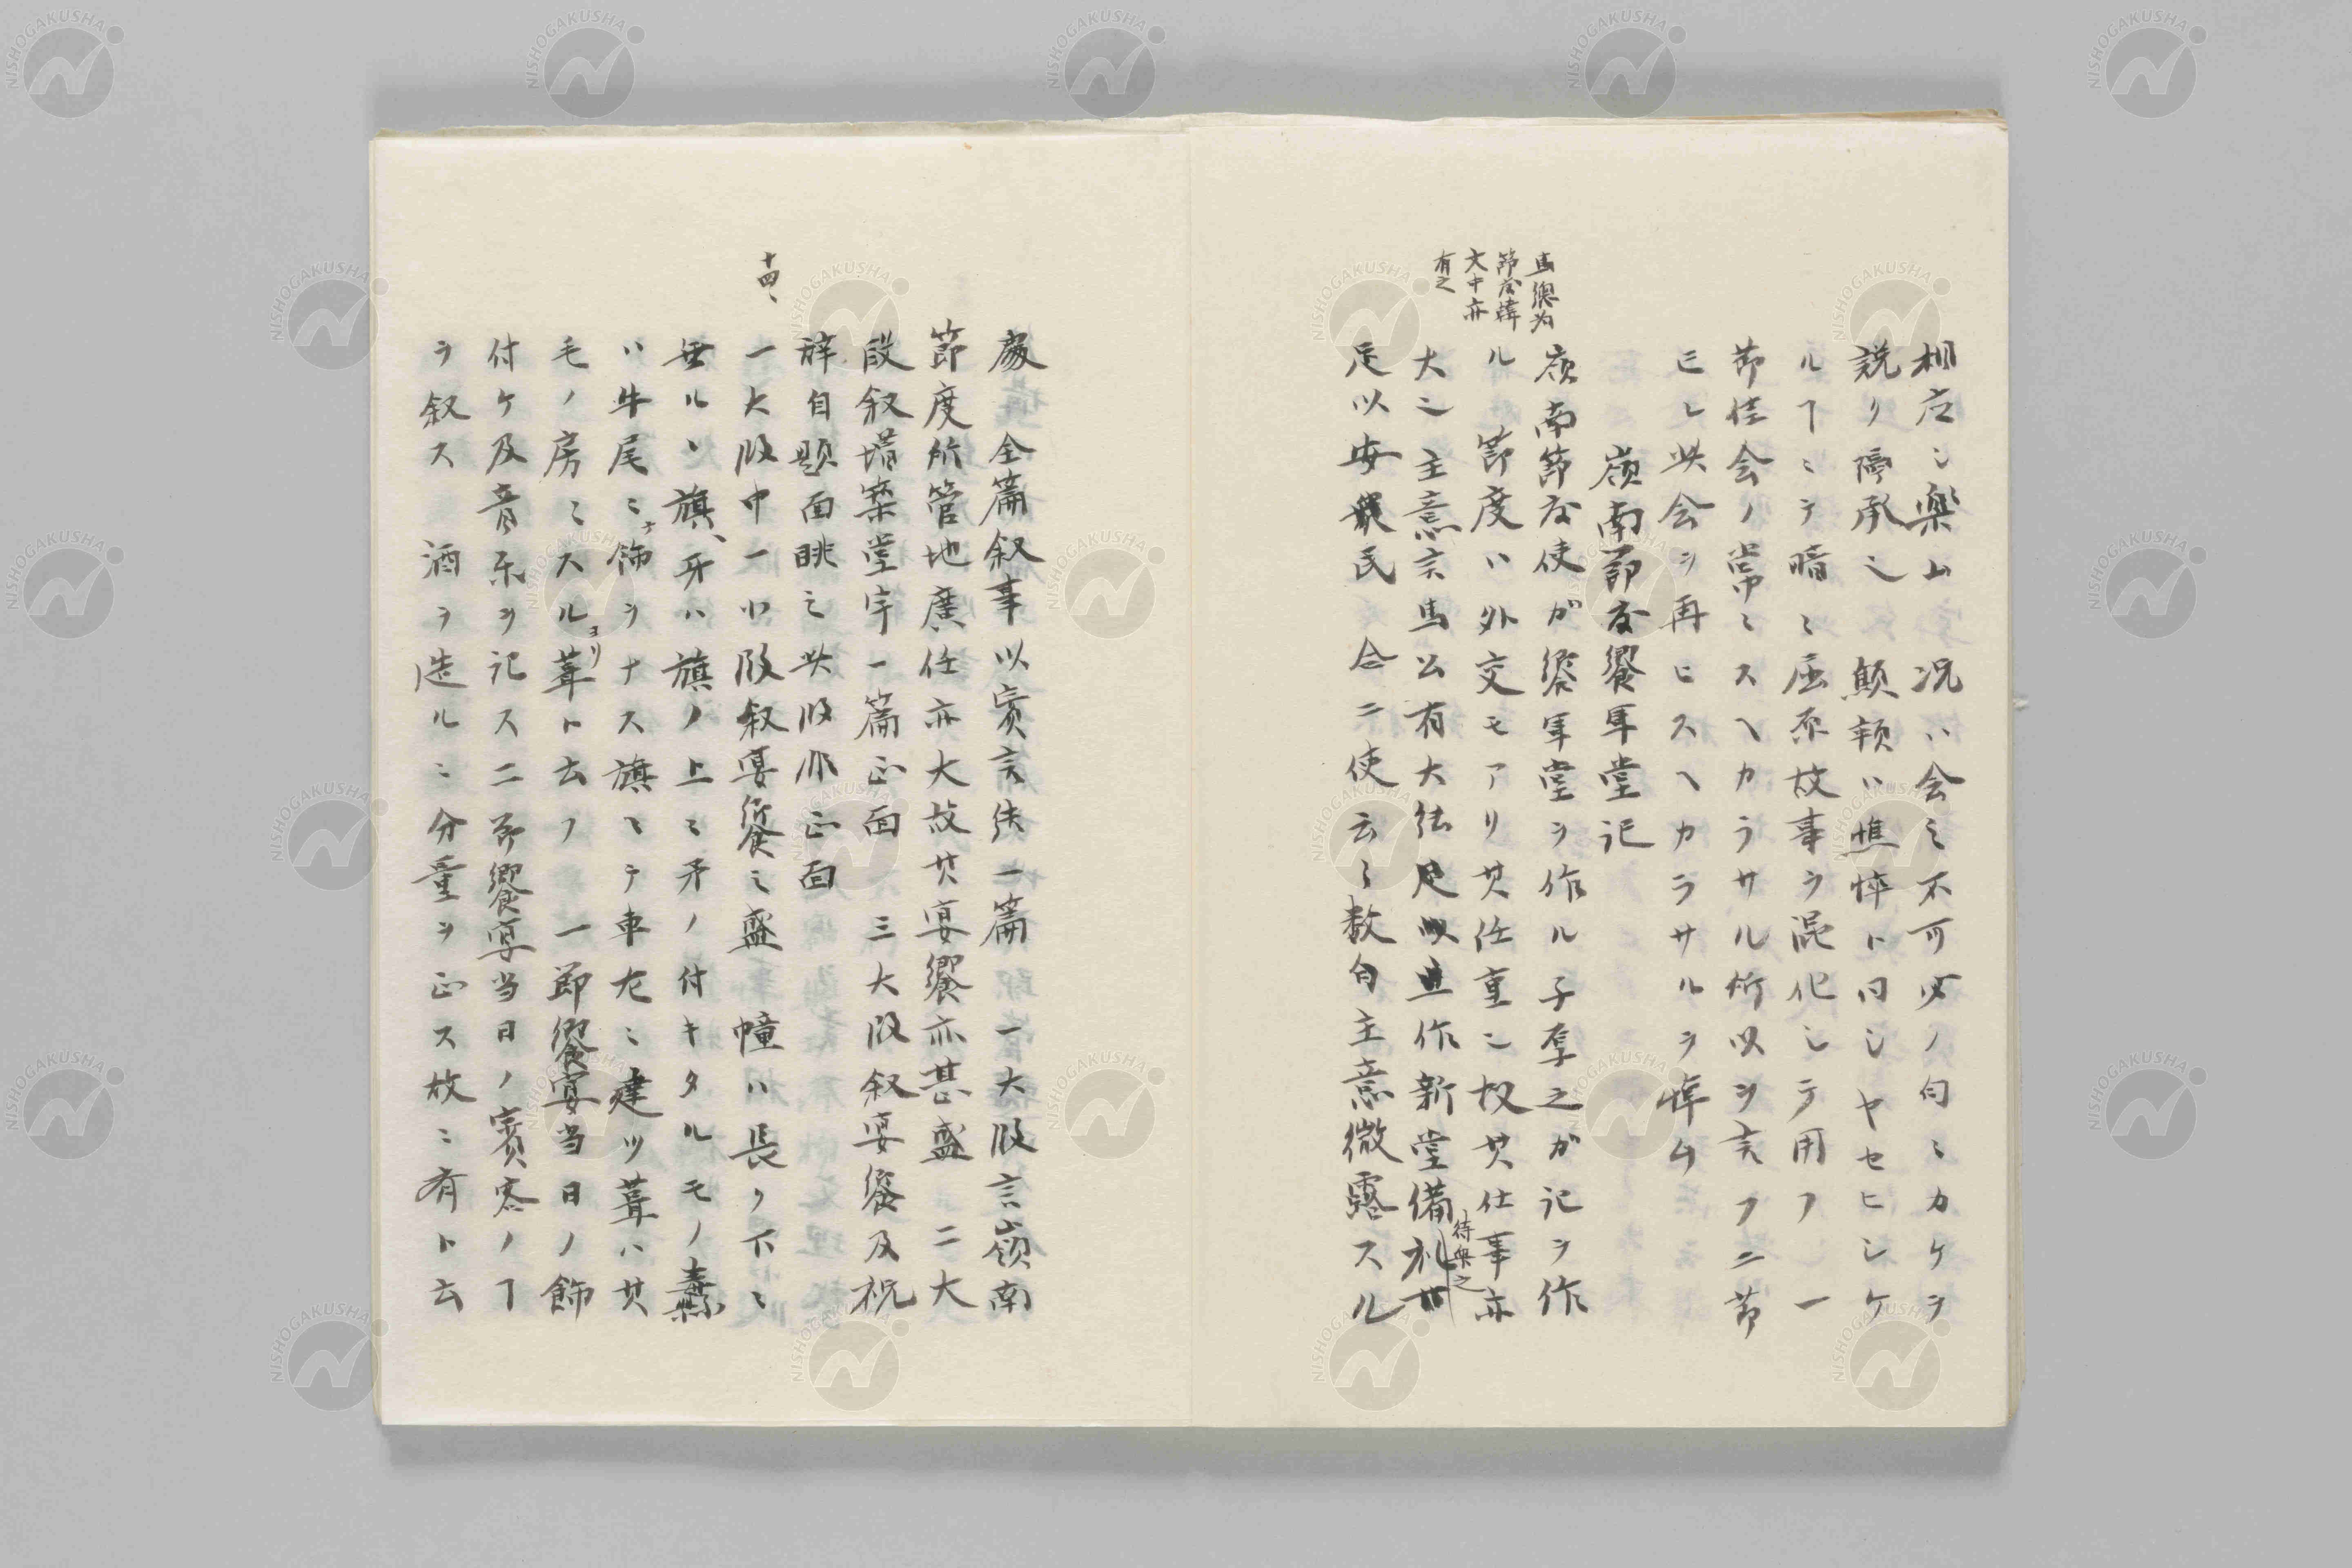 相応シ楽山 况ハ会ミ不可必ノ句ミカケラ
説リ隔承之 顛頓ハ憔悴ト同シヤセヒシケ
ルヿミテ暗ミ屈原故事ラ混化シテ用フ 一
節佳会ノ常ミスヘカラサル所以ヲ言フ二節
已レ此会ヲ再ヒスヘカラサルラ悼ム
嶺南節度饗軍堂記
馬總为
節度韓
文中亦
有之
嶺南節度使ガ饗軍堂ヲ作ル子厚之ガ記ラ作
ル 節度ハ外交モアリ其任重シ故其仕事亦
大シ主意言馬公有大法足以且作新堂備礼
待寒之
足以安 民 合ニ使云々数句主意微露スル
處 全篇叙事以賓言法一篇 一大段言嶺南
節度所管地廣任亦大故其宴饗亦甚盛 二大
段叙増築堂宇一篇正面 三大段叙宴饗及祝
辞自題面眺之此段亦正面
十四、
一大段中一小段叙宴饗之盛 幢ハ長ク下ミ
垂ル、旗、牙ハ旗ノ上ミ矛ノ付キタルモノ纛
ハ牛尾ミテ飾ラナス旗ミテ車左ミ建ツ葺ハ其
毛ノ房ミスルヨリ葺ト云フ 一節饗宴当日ノ飾
付ケ及音楽ヲ記ス二節饗宴当日ノ賓客ノヿ
ラ叙ス 酒ラ造ルミ分量ヲ正ス故ミ有ト云